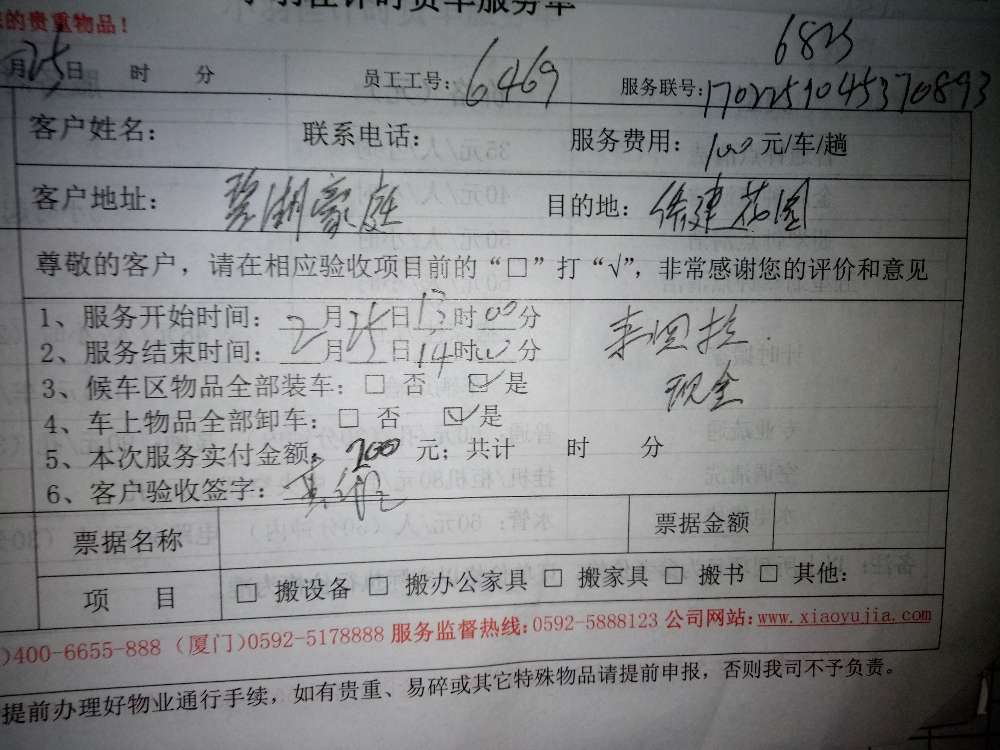 的贵重物品！
计时货车服务单
6825
月25日 时 分 员工工号：6469 服务联号：1702251045370893
客户姓名： 联系电话： 服务费用：100元/车/趟
客户地址：碧湖豪庭 目的地：建花园
尊敬的客户，请在相应验收项目前的“□”打“√”，非常感谢您的评价和意见
1、服务开始时间：2月25日13时00分
2、服务结束时间：2月25日14时00分
现金
3、候车区物品全部装车：□ 否 ☑是
4、车上物品全部卸车：□ 否 ☑是
5、本次服务实付金额：200元；共计 时 分
6、客户验收签字：
票据名称 票据金额
项 目 □ 搬设备 □ 搬办公家具 □ 搬家具 □ 搬书 □ 其他：
)400-6655-888 (厦门)0592-5178888 服务监督热线：0592-5888123 公司网站：www.xiaoyujia.com
提前办理好物业通行手续，如有贵重、易碎或其它特殊物品请提前申报，否则我司不予负责。